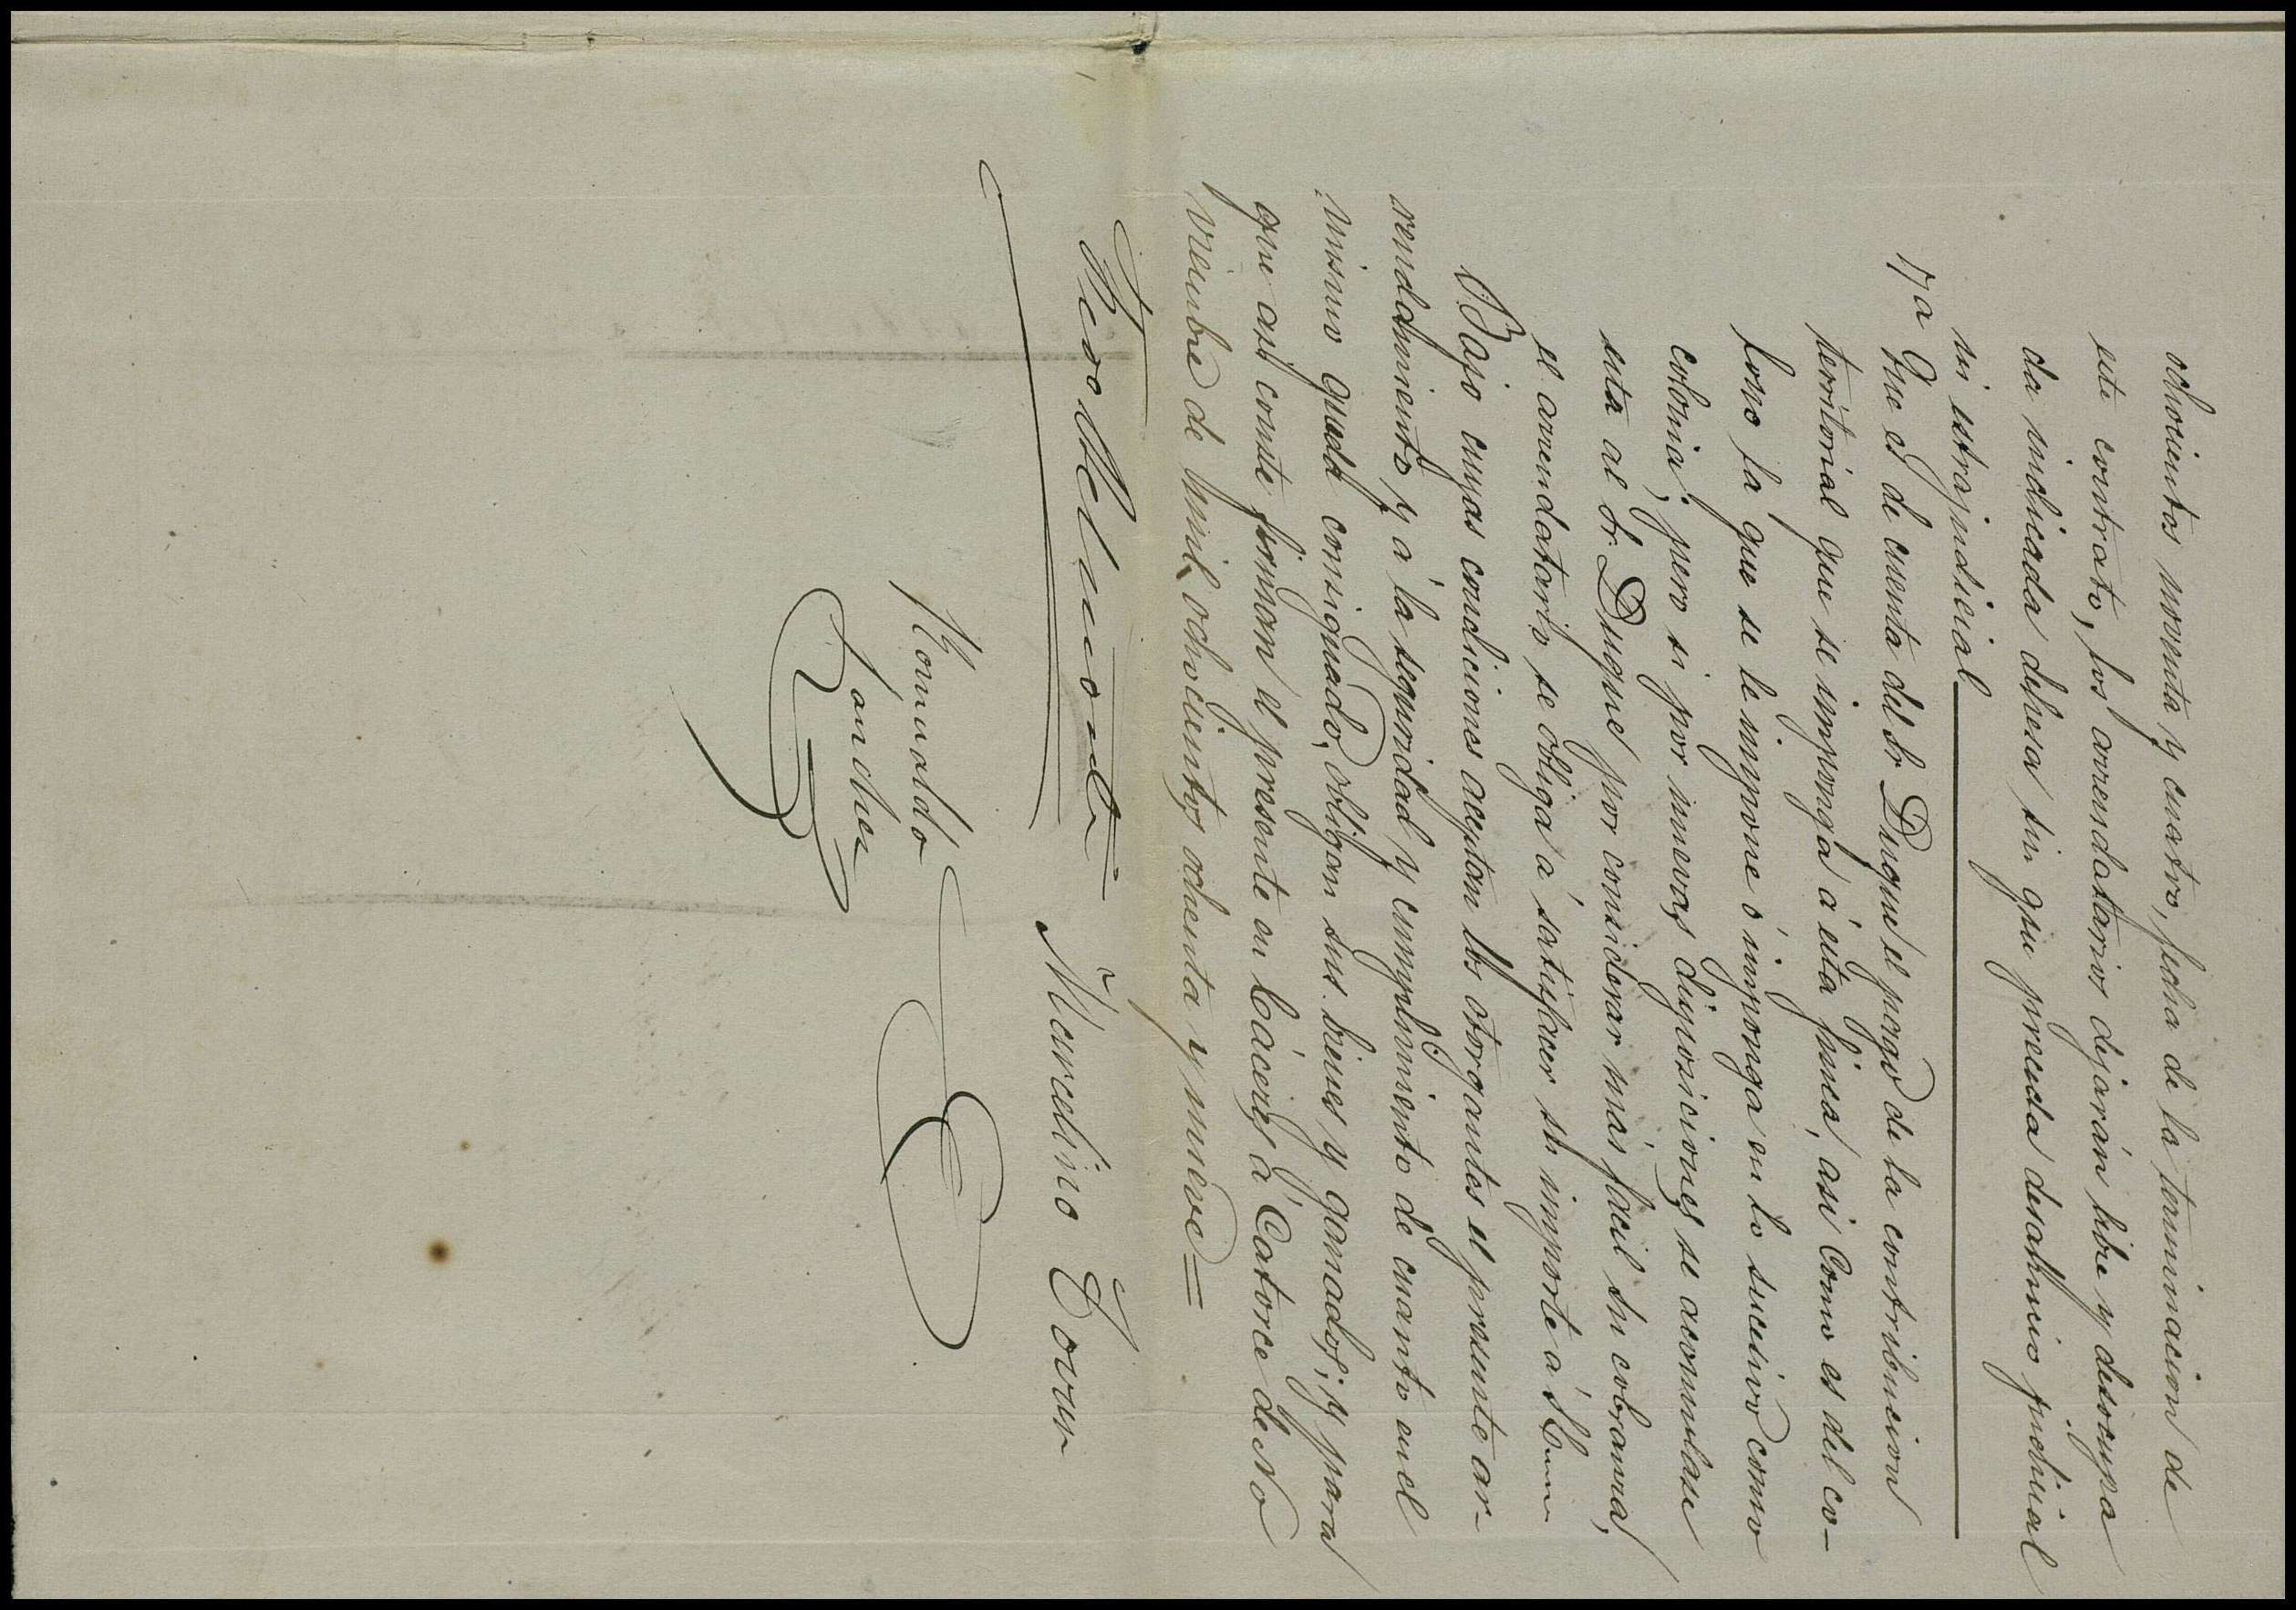 ochocientos noventa y cuatro, fecha de la terminacion de
este contrato, los arrendatarios dejarán libre y desocupa
da indicada dehesa sin que preceda desahucio judicial
ni estrajudicial
17a Que es de cuenta del Sr Duque el pago de la contribucion
territorial que se imponga á esta finca, asi como es del co-
lono la que se le impone ó imponga en lo sucesivo como
colonia; pero si por nuevas disposiciones se acomulase
esta al Sr Duque por considerar más facil su cobranza,
el arrendatario se obliga á satisfacer su importe á S. E.
Bajo cuyas condiciones aceptan los otorgantes el presente ar-
rendamiento y á la seguridad y cumplimiento de cuanto en el
mismo queda consignado, obligan sus bienes y ganados; y para
que asi conste firman el presente en Cáceres á Catorce de No
viembre de mil ochocientos ochenta y nueve=
Marcelino Tovar
Romualdo
Sanchez